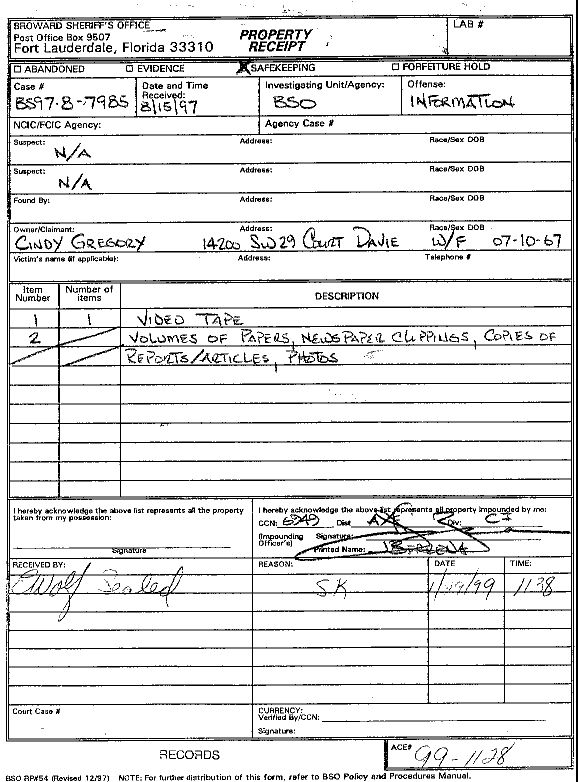 BROWARD SHERIFF'S OFFICE
Post Office Box 9507
Fort Lauderdale, Florida 33310
PROPERTY
RECEIPT
LAB #
ABANDONED EVIDENCE SAFEKEEPING FORFEITURE HOLD
Case # Date and Time Received: Investigating Unit/Agency: Offense:
BS97-8-7985 8/15/97 BSO INFORMATION
NCIC/FCIC Agency: Agency Case #
Suspect: Address: Race/Sex DOB
N/A
Suspect: Address: Race/Sex DOB
N/A
Found By: Address: Race/Sex DOB
Owner/Claimant: Address: Race/Sex DOB
CINDY GREGORY 14200 SW 29 COURT DAVIE W/F 07-10-67
Victim's name (if applicable): Address: Telephone #
Item Number Number of items DESCRIPTION
1 1 VIDEO TAPE
2 VOLUMES OF PAPERS, NEWSPAPER CLIPPINGS, COPIES OF
REPORTS/ARTICLES, PHOTOS
I hereby acknowledge the above list represents all the property
taken from my possession:
Signature
I hereby acknowledge the above list represents all property impounded by me:
CCN: Dist Div: CI
(Impounding Officer's) Signature:
Printed Name:
RECEIVED BY: REASON: DATE TIME:
Wolf Sealed SK 1138
Court Case # CURRENCY:
Verified By/CCN:
Signature:
RECORDS
ACE# 99-1128
BSO RP#54 (Revised 12/97) NOTE: For further distribution of this form, refer to BSO Policy and Procedures Manual.